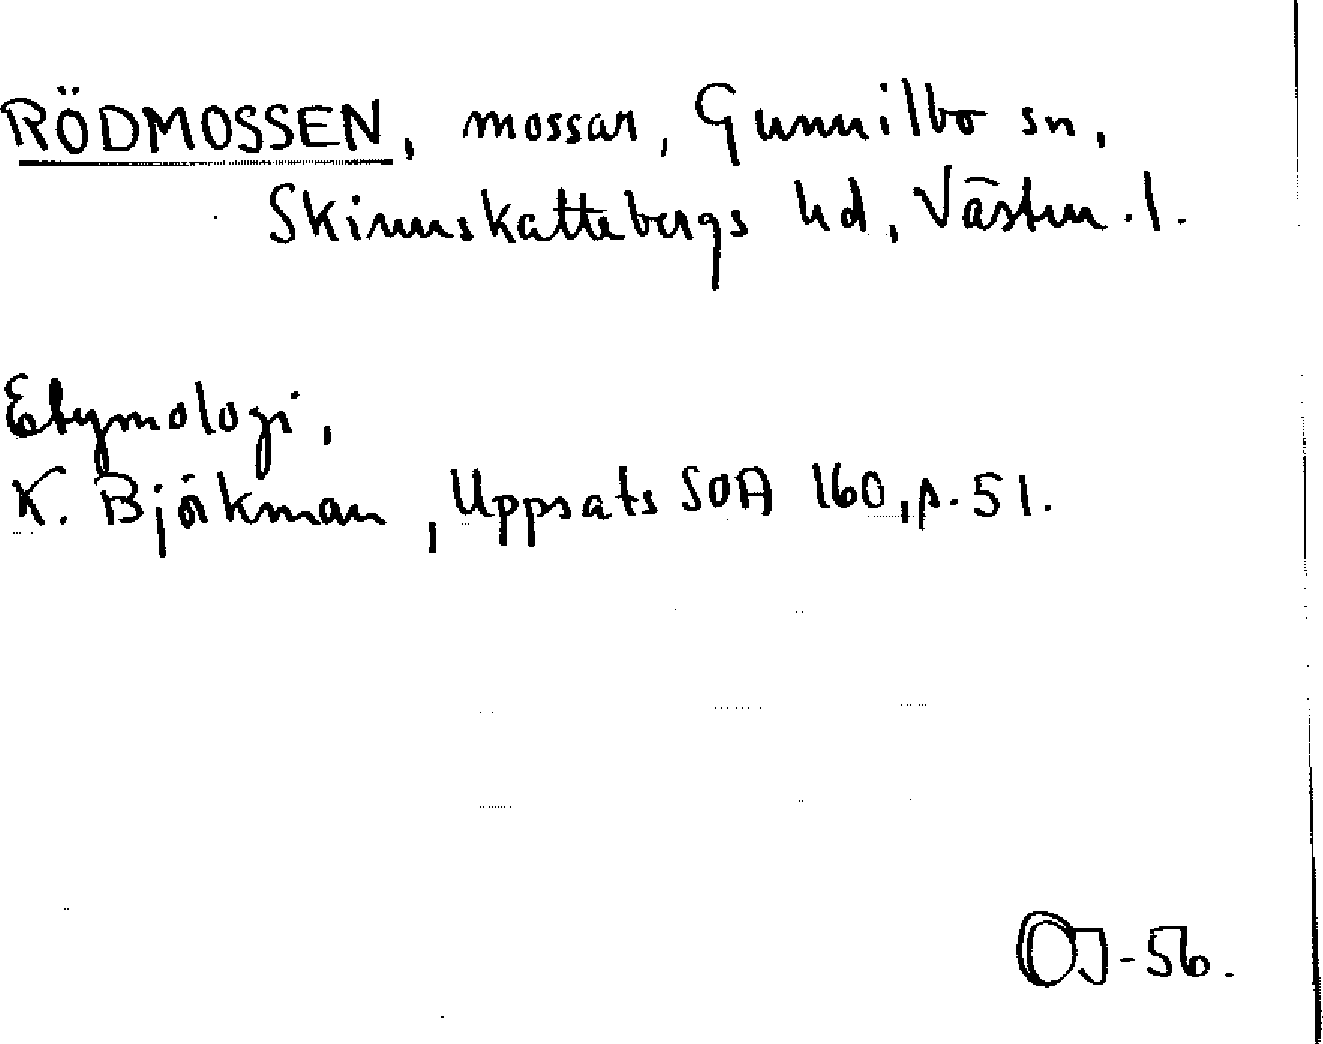 RÖDMOSSEN, mossar, Gunnilbo sn,
Skinnskattebergs hd, Västm.l.
Etymologi,
K. Björkman, Uppsats SOA 160, p. 51.
OJ-56.